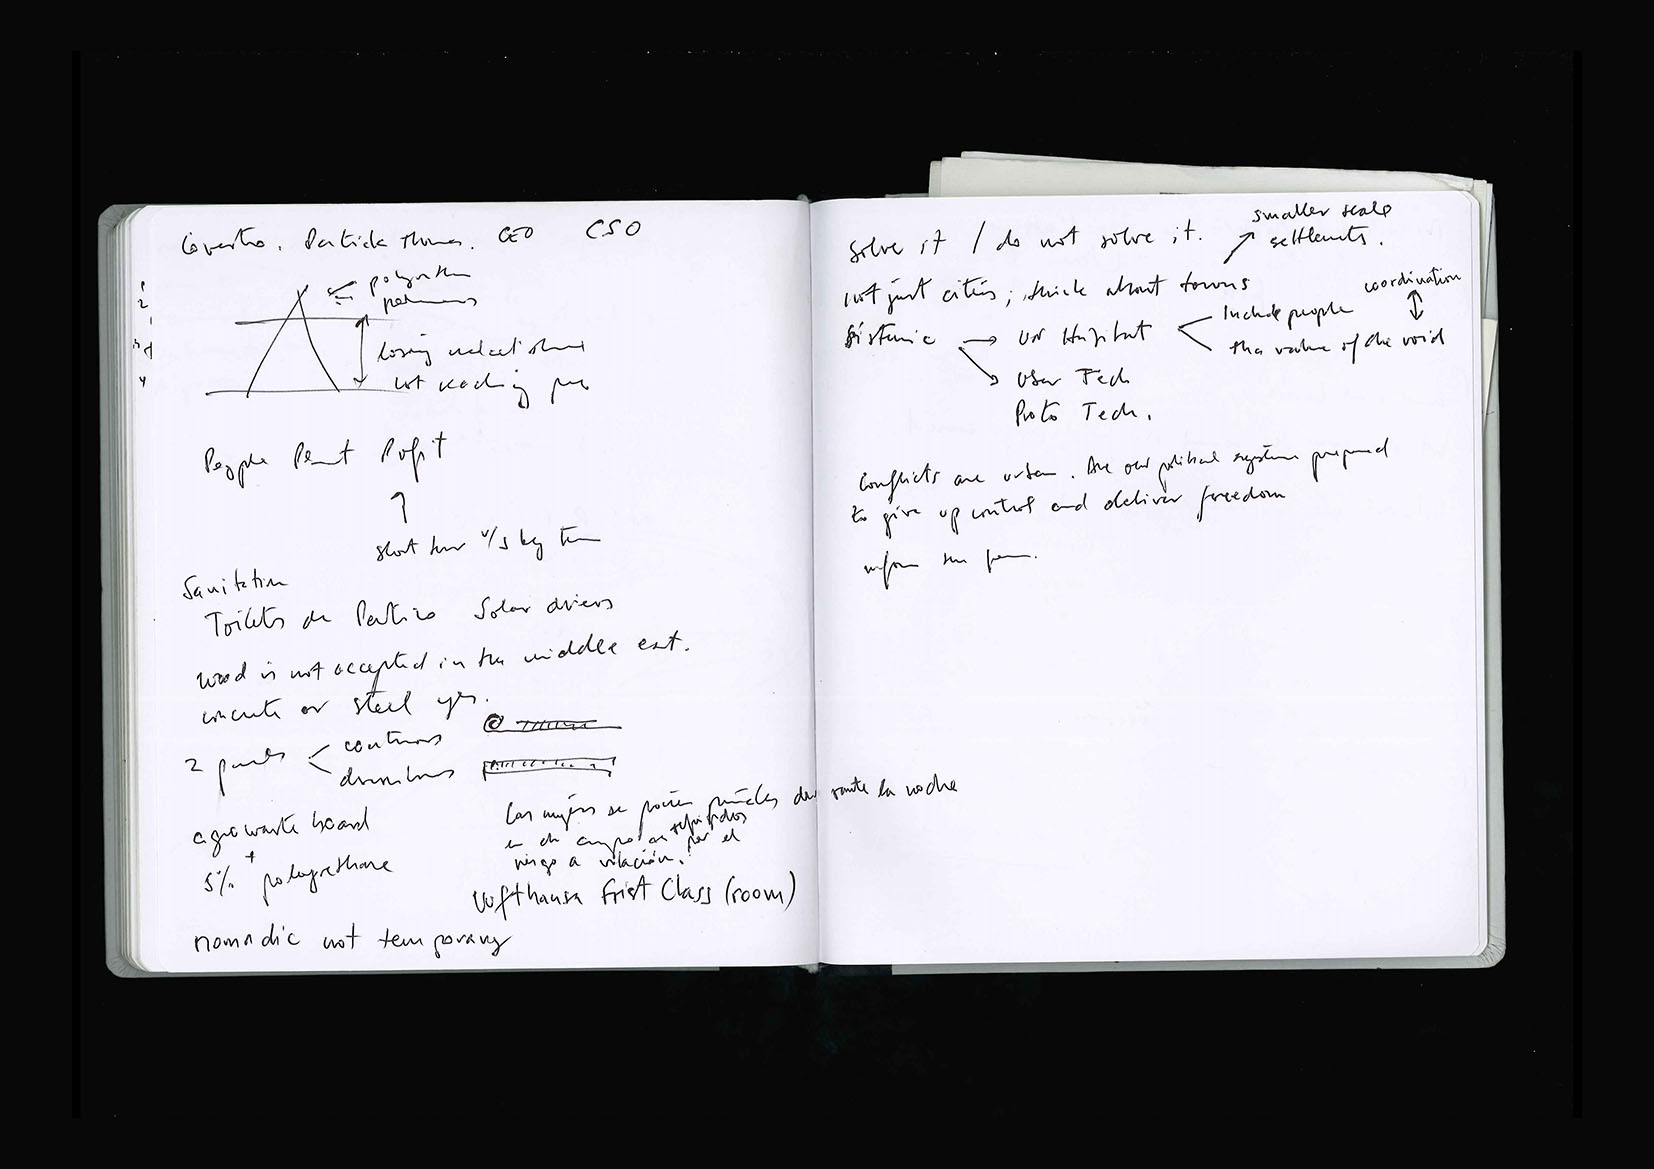 Covestro. Patrick Thomas. CEO CSO
1
2
3
4
polyurethan
losing market share
not reaching
People Planet Profit
short term v/s long term
Sanitation
Toilets de Solar driers
wood is not accepted in the middle east.
concrete or steel yes.
2 panels
continous
agrowaste board
+
5% polyurethane
Las mujeres se ponen pañales durante la noche
en de campo de refugiados
por el
riesgo a violación.
Lufthansa Frist Class (room)
nomadic not temporary
solve it / do not solve it.
smaller scale
settlements.
not just cities; think about towns
coordination
Include people
Sistemic UN Habitat
the value of the void
User Tech
Proto Tech.
Conflicts are urban. Are our political system prepared
to give up control and deliver freedom